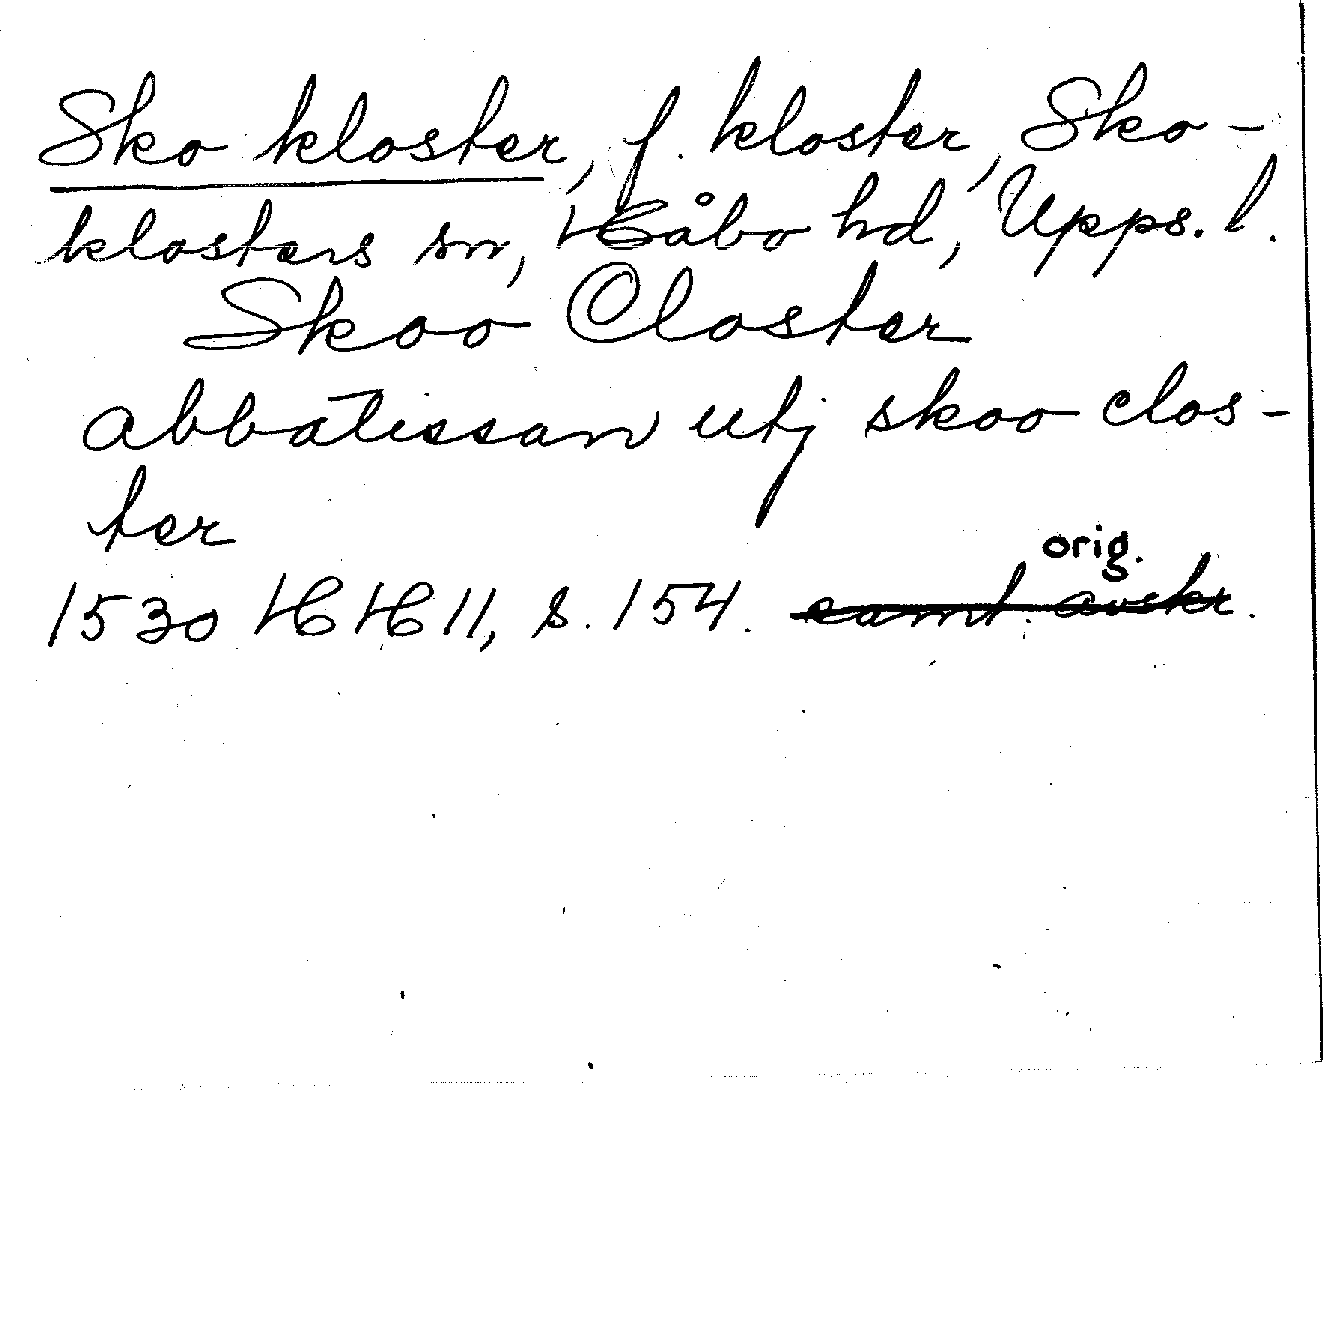 Sko kloster, f. kloster, Sko-
klosters sn, Håbo hd, Upps. l.
Skoo Closter
abbatissan utj skoo clos-
ter
orig.
1530 HH 11, s. 154. samt. avskr.